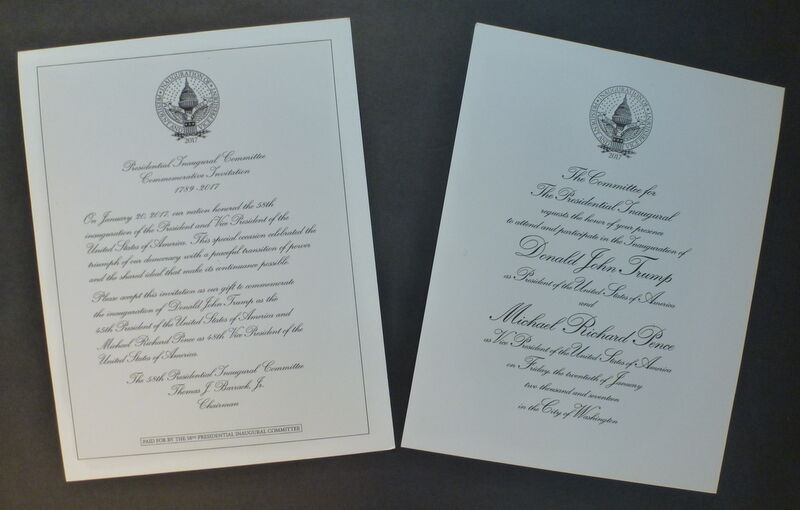 2017
Presidential Inaugural Committee
Commemorative Invitation
1789-2017
On January 20, 2017, our nation honored the 58th
inauguration of the President and Vice President of the
United States of America. This special occasion celebrated the
triumph of our democracy with a peaceful transition of power
and the shared ideal that make its continuance possible.
Please accept this invitation as our gift to commemorate
the inauguration of Donald John Trump as the
45th President of the United States of America and
Michael Richard Pence as 48th Vice President of the
United States of America.
The 58th Presidential Inaugural Committee
Thomas J. Barrack, Jr.
Chairman
PAID FOR BY THE 58TH PRESIDENTIAL INAUGURAL COMMITTEE
2017
The Committee for
The Presidential Inaugural
requests the honor of your presence
to attend and participate in the Inauguration of
Donald John Trump
as President of the United States of America
and
Michael Richard Pence
as Vice President of the United States of America
on Friday, the twentieth of January
two thousand and seventeen
in the City of Washington